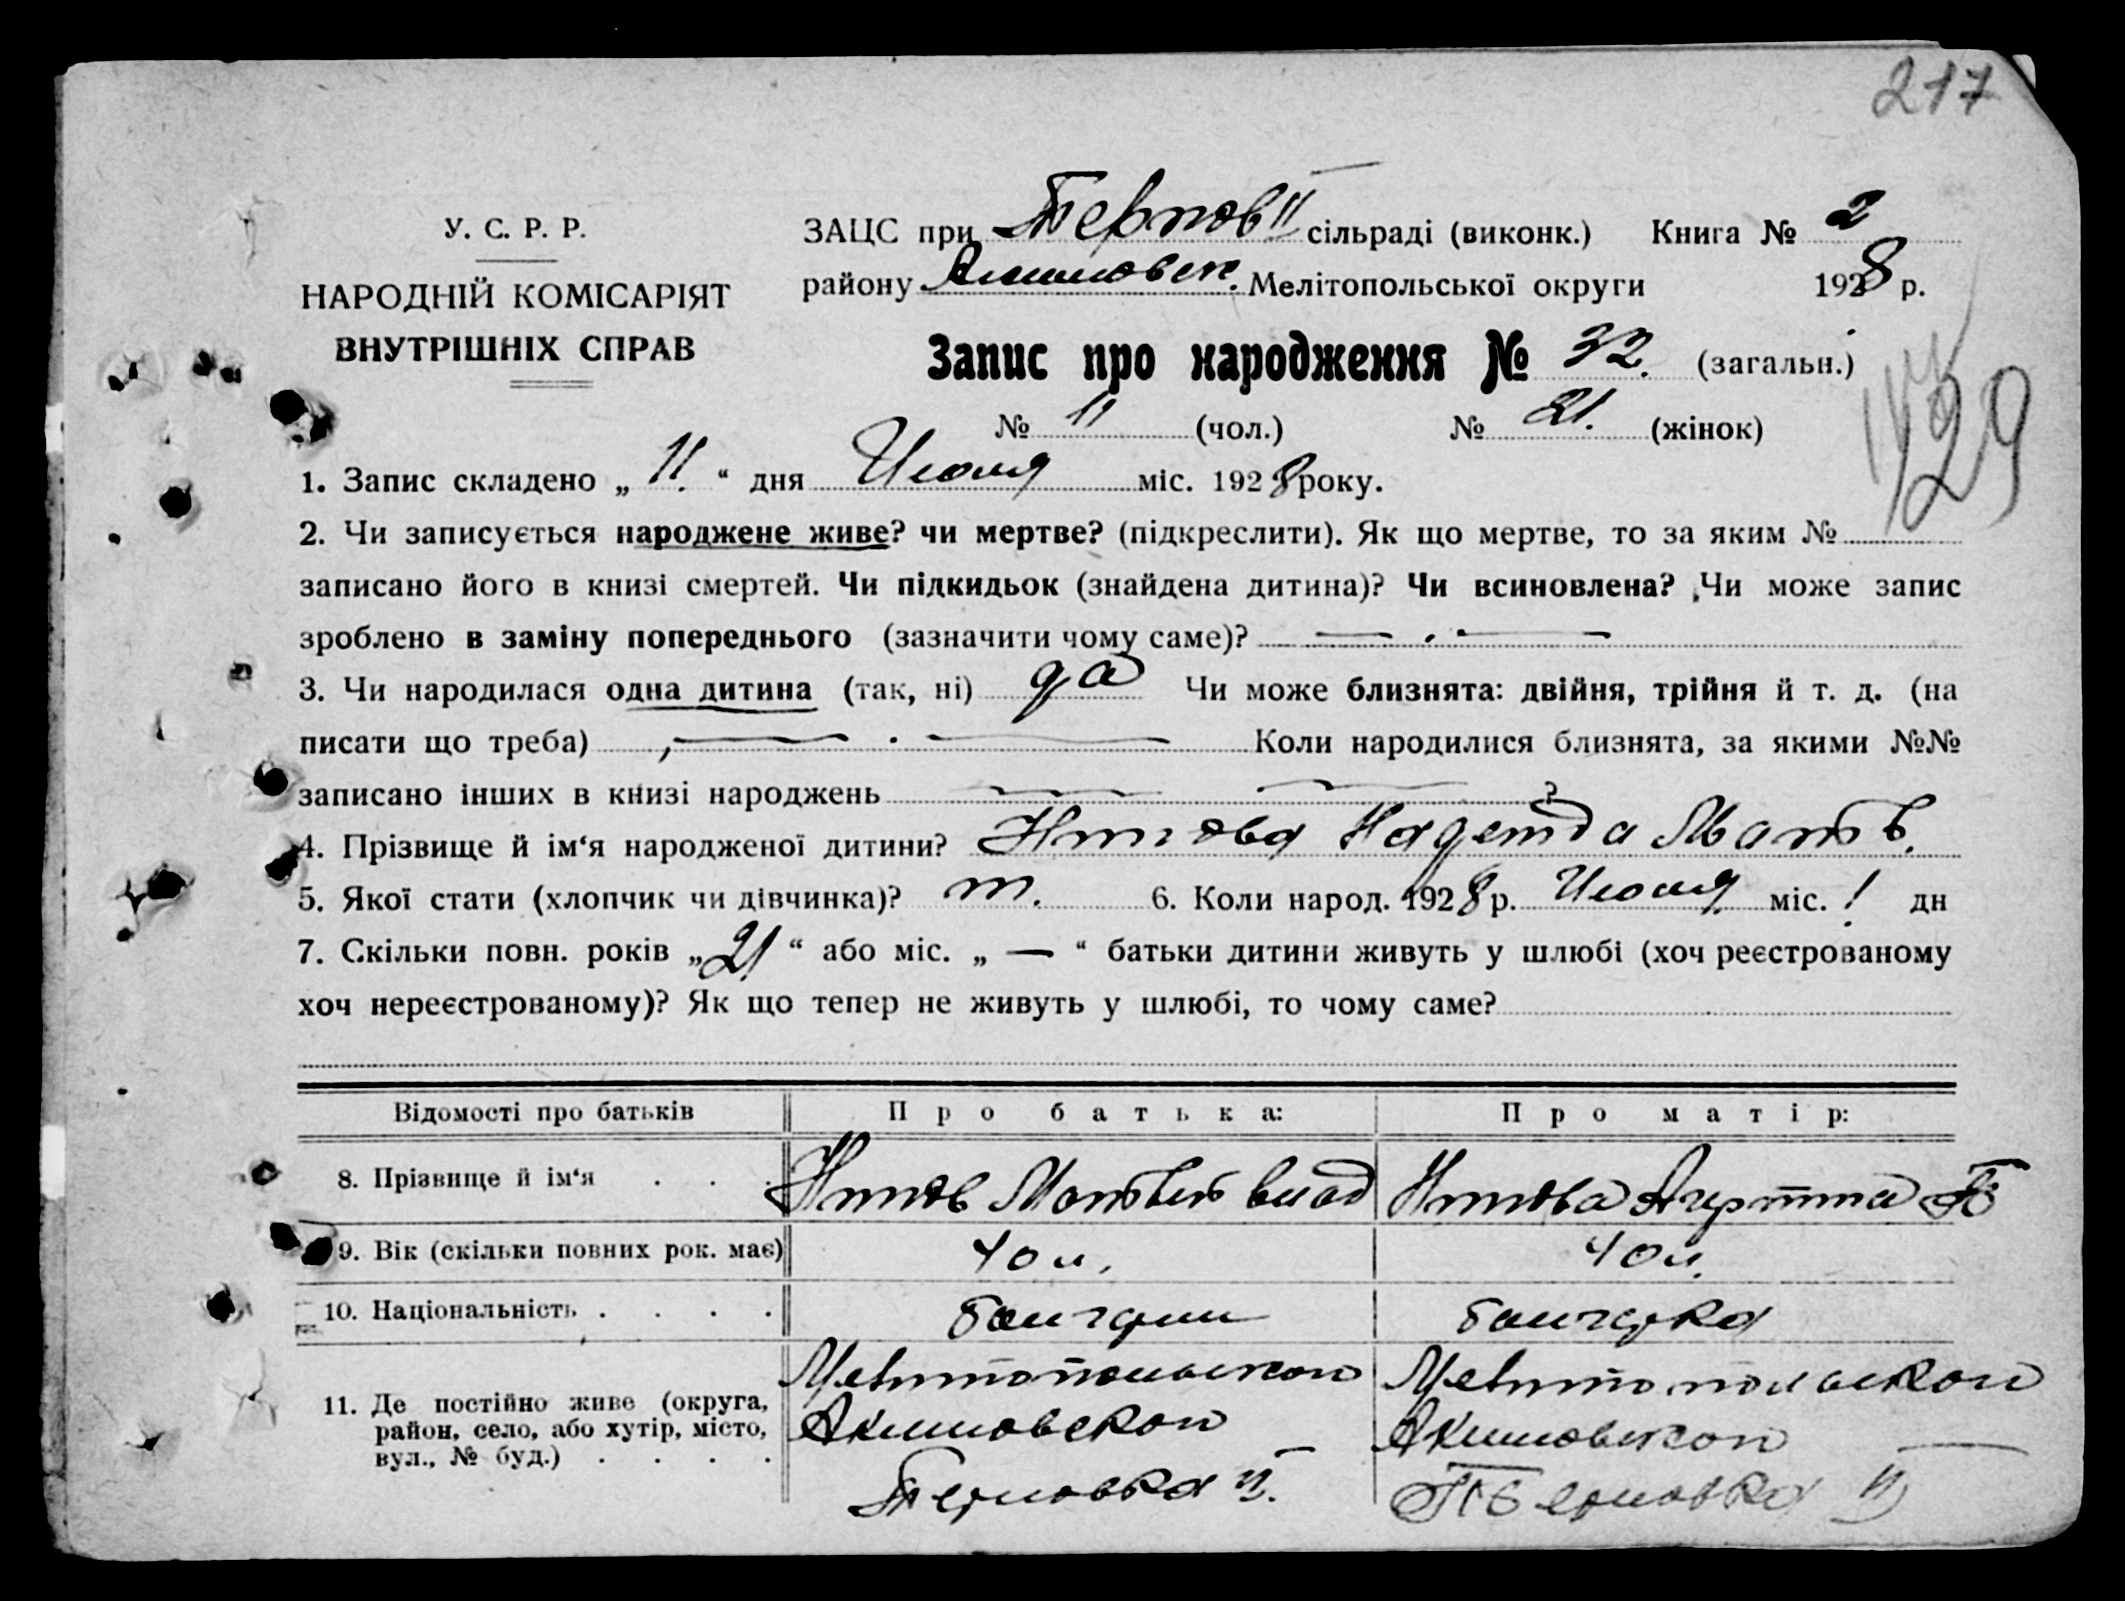 217
У. С. Р. Р.
НАРОДНІЙ КОМІСАРІЯТ
ВНУТРІШНІХ СПРАВ
ЗАЦС при II сільраді (виконк.) Книга № 2
району Акимовск. Мелітопольської округи 1928 р.
Запис про народження № 32. (загальн.)
№ 11 (чол.) № 21. (жінок)
129
1. Запис складено „ 11. “ дня Июля міс. 1928 року.
2. Чи записується народжене живе? чи мертве? (підкреслити). Як що мертве, то за яким №
записано його в книзі смертей. Чи підкидьок (знайдена дитина)? Чи всиновлена? Чи може запис
зроблено в заміну попереднього (зазначити чому саме)? — . —
3. Чи народилася одна дитина (так, ні) да Чи може близнята: двійня, трійня й т. д. (на
писати що треба) — . — Коли народилися близнята, за якими №№
записано інших в книзі народжень — —
4. Прізвище й ім‘я народженої дитини? Надежда Матв.
5. Якої стати (хлопчик чи дівчинка)? 6. Коли народ. 1928 р. Июля міс. 1 дн
7. Скільки повн. років „ 21 “ або міс. „ — “ батьки дитини живуть у шлюбі (хоч реєстрованому
хоч нереєстрованому)? Як що тепер не живуть у шлюбі, то чому саме?
Відомості про батьків Про батька: Про матір:
8. Прізвище й ім‘я . . . Матвей
9. Вік (скільки повних рок. має) 40 л. 40 л.
10. Національність . . . . болгарин болгарка
11. Де постійно живе (округа,
район, село, або хутір, місто,
вул., № буд.) . . . .
Мелитопольской
Акимовской
Терновка II.
Мелитопольской
Акимовской
Терновка II